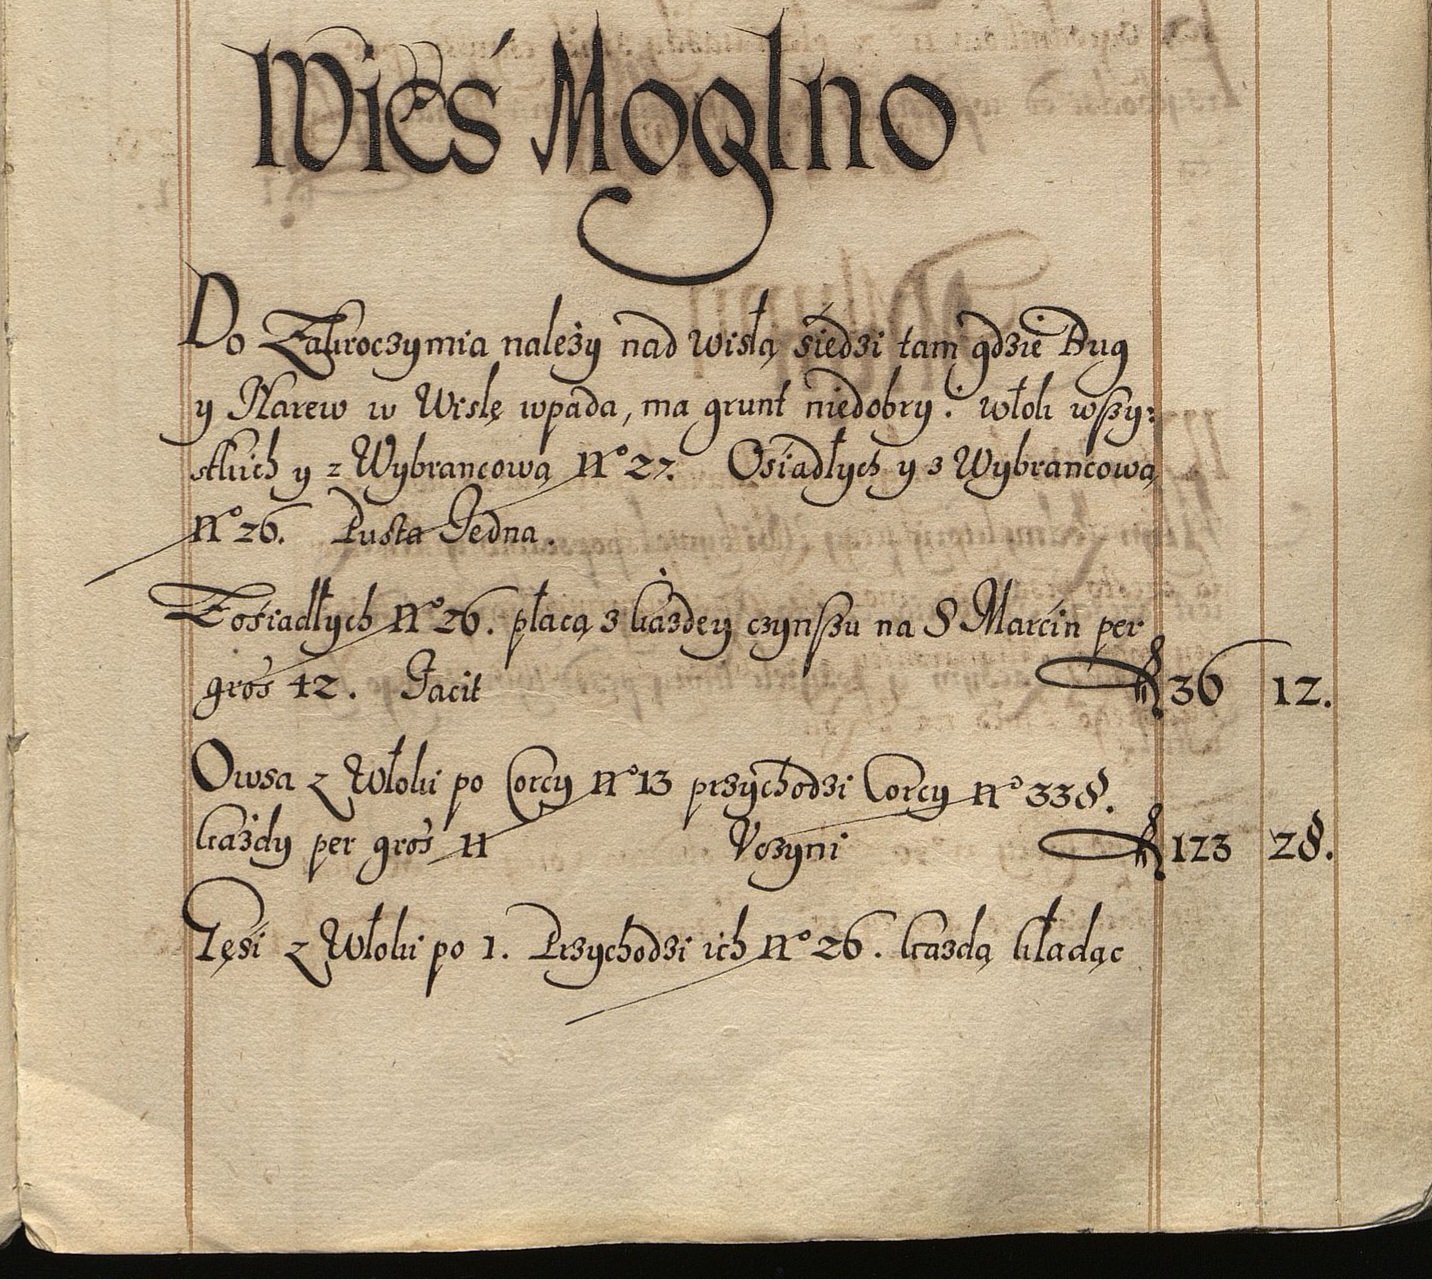 Wieś Moglno
Do Zakroczymia należy nad Wisłą siedzi tam gdzie Bug
y Narew w Wisłę wpada, ma grunt niedobry. włok wszy:
stkich y z Wybrancową No 27. Osiadłych y z Wybrancową
No 26. Pusta Jedna.
Z osiadłych No 26. płacą z każdey czynszu na S Marcin per
gros 42. Facit 36 12.
Owsa z Włoki po Corcy No 13 przychodzi Corcy No 338.
każdy per gros 11 Uczyni 123 28.
Gęsi z Włoki po 1. Przychodzi ich No 26. każdą kładąc